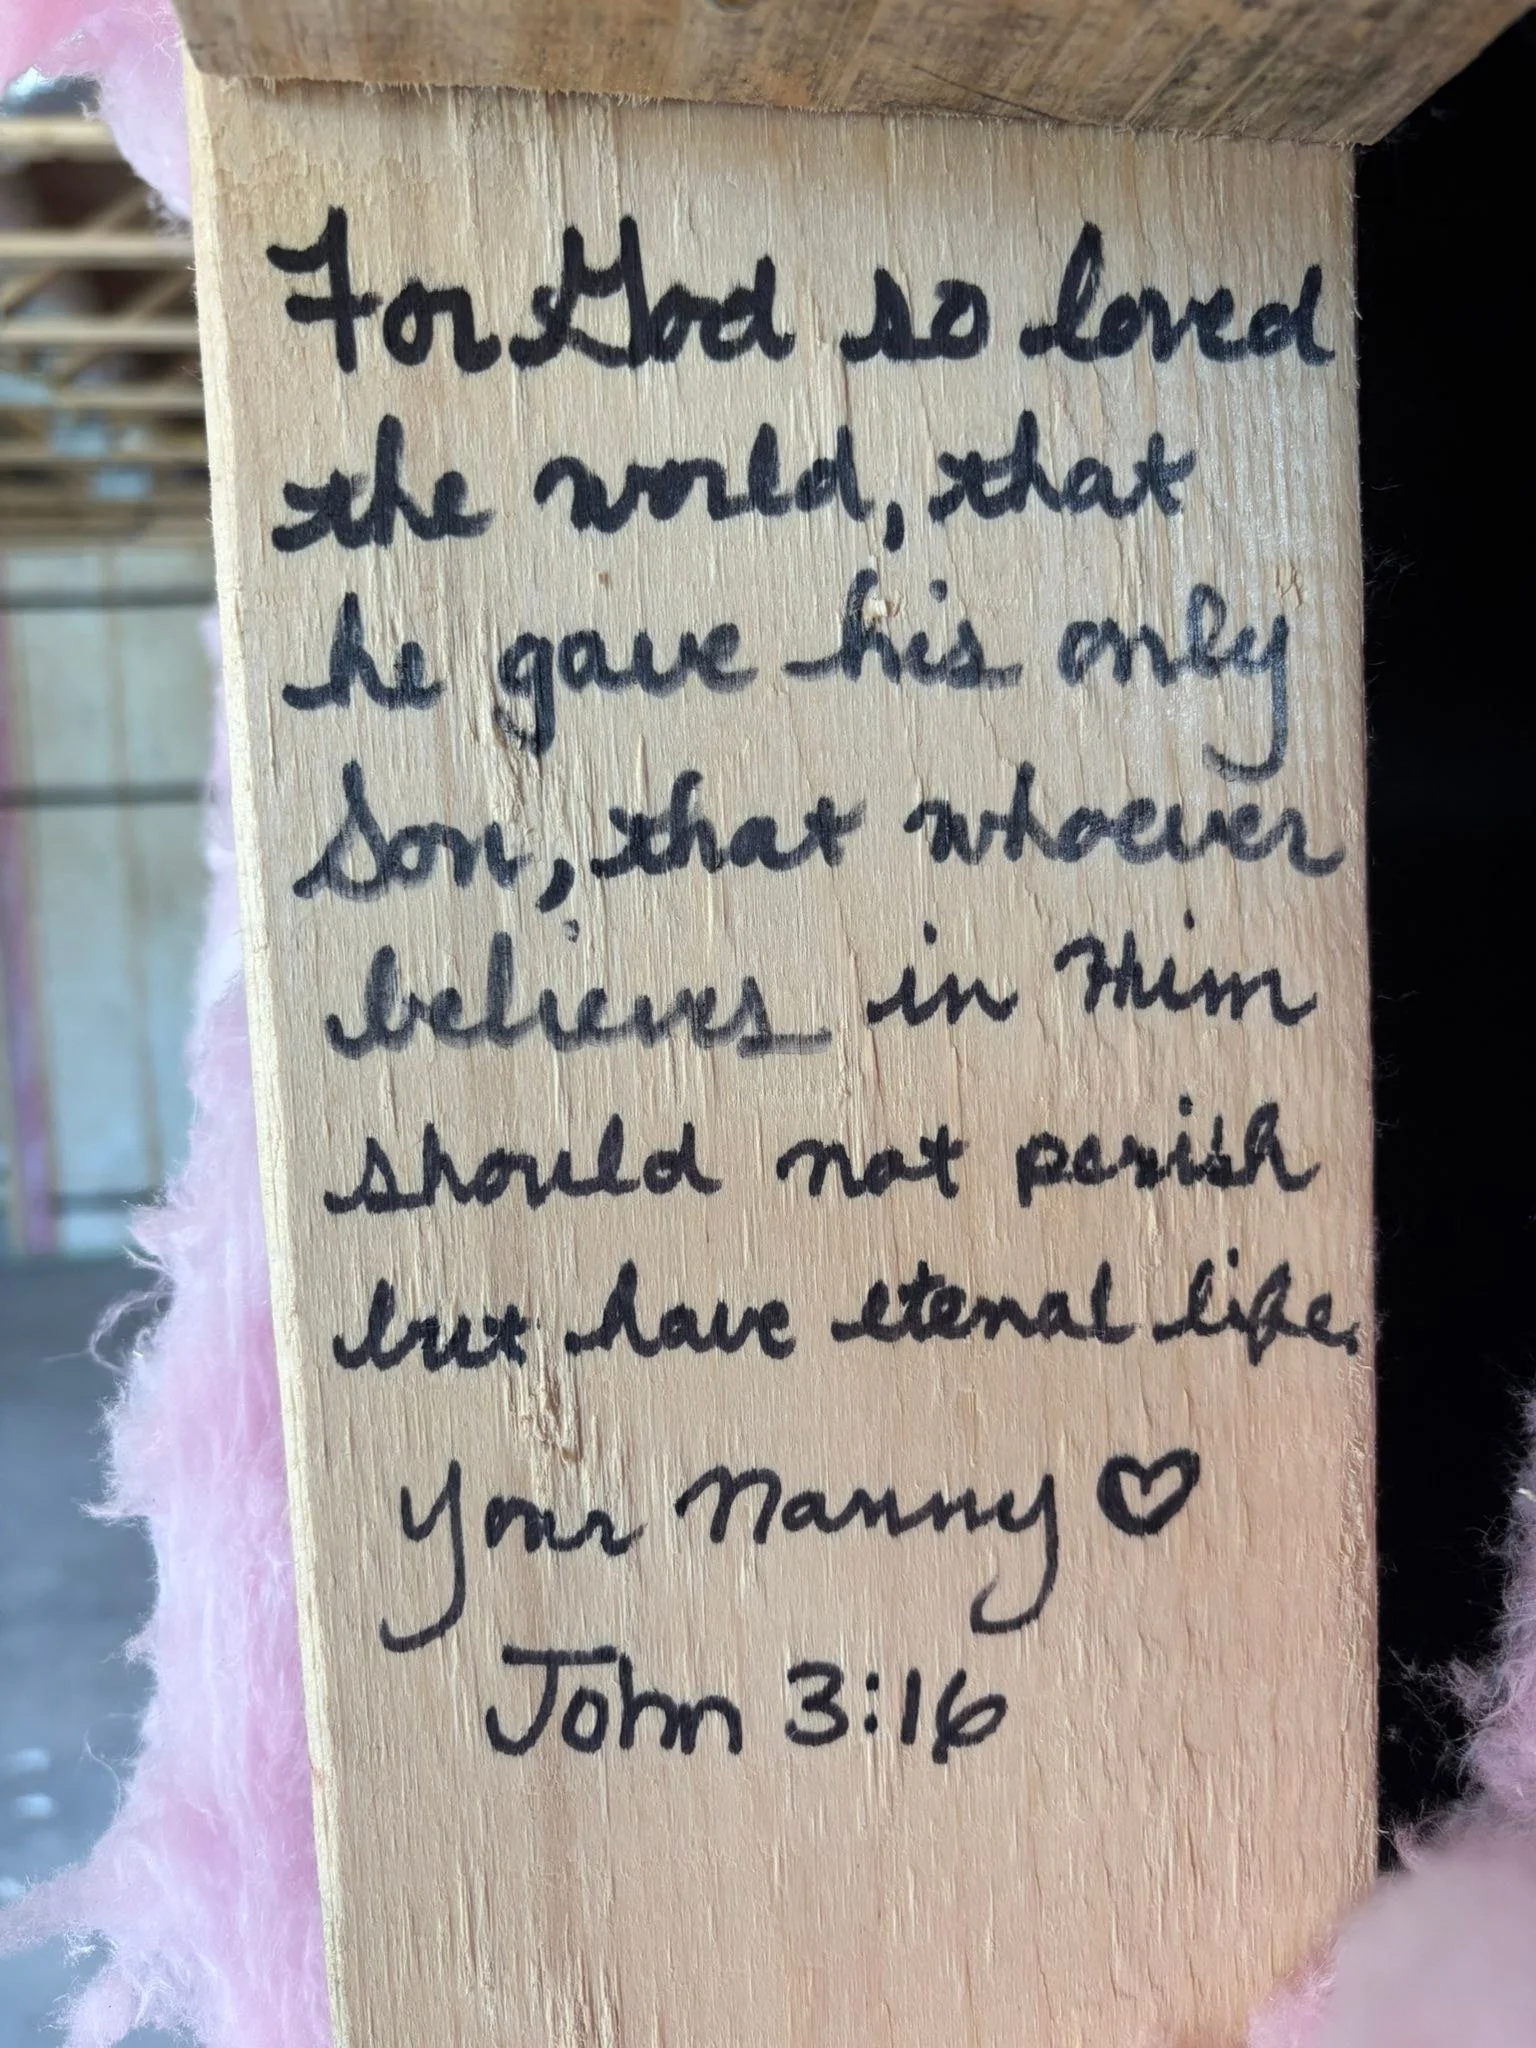 For God so loved
the world, that
he gave his only
Son, that whoever
believes in Him
should not perish
but have eternal life.
Your Nanny ♡
John 3:16